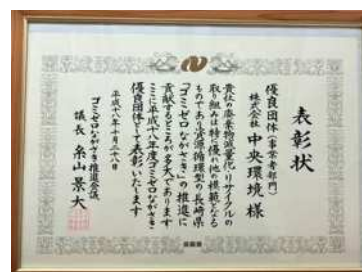 表彰状
優良団体(事業者部門)
株式会社 中央環境 様
貴社の廃棄物減量化・リサイクルの
取り組みは特に優れ他の模範となる
ものであり資源循環型の長崎県
「ゴミゼロながさき」の推進に
貢献するところが多大であります
ここに平成十八年度ゴミゼロながさき
優良団体として表彰いたします
平成十八年十月二十八日
ゴミゼロながさき推進会議
議長 糸山景大